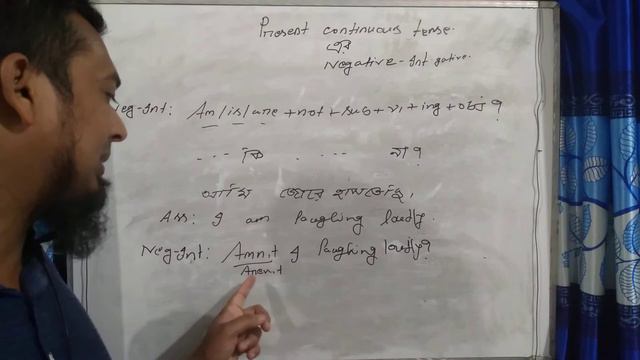 Present continuous tense.
এর
Negative-Int gative.
eg-Int: Am/is/are+not+sub+v1+ing+obj?
... কি .... না?
আমি জোরে হাসতেছি,
Ass: I am laughing loudly.
Neg-Int: Amn,t I laughing loudly?
Aren,t